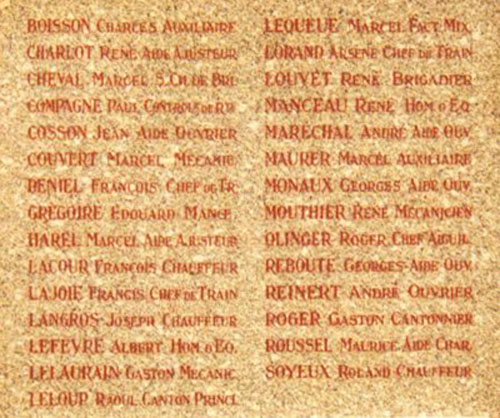 BOISSON CHARLES AUXILIAIRE
CHARLOT RENÉ AIDE AJUSTEUR
CHEVAL MARCEL S. CH. DE BRI.
COMPAGNE PAUL CONTROL. DE R.
COSSON JEAN AIDE OUVRIER
COUVERT MARCEL MÉCANIC.
DENIEL FRANÇOIS CHEF DE TR.
GREGOIRE EDOUARD MANŒ.
HAREL MARCEL AIDE AJUSTEUR
LACOUR FRANÇOIS CHAUFFEUR
LAJOIE FRANCIS CHEF DE TRAIN
LANGROS JOSEPH CHAUFFEUR
LEFEVRE ALBERT HOM. D'EQ.
LELAURAIN GASTON MECANIC.
LELOUP RAOUL CANTON. PRINCI.
LEQUEUE MARCEL FACT. MIX.
LORAND ARSENE CHEF DE TRAIN
LOUVET RENÉ BRIGADIER
MANCEAU RENÉ HOM. D'EQ.
MARECHAL ANDRÉ AIDE OUV.
MAURER MARCEL AUXILIAIRE
MONAUX GEORGES AIDE OUV.
MOUTHIER RENÉ MÉCANICIEN
OLINGER ROGER CHEF AIGUIL.
REBOUTE GEORGES AIDE OUV.
REINERT ANDRÉ OUVRIER
ROGER GASTON CANTONNIER
ROUSSEL MAURICE AIDE CHAR.
SOYEUX ROLAND CHAUFFEUR